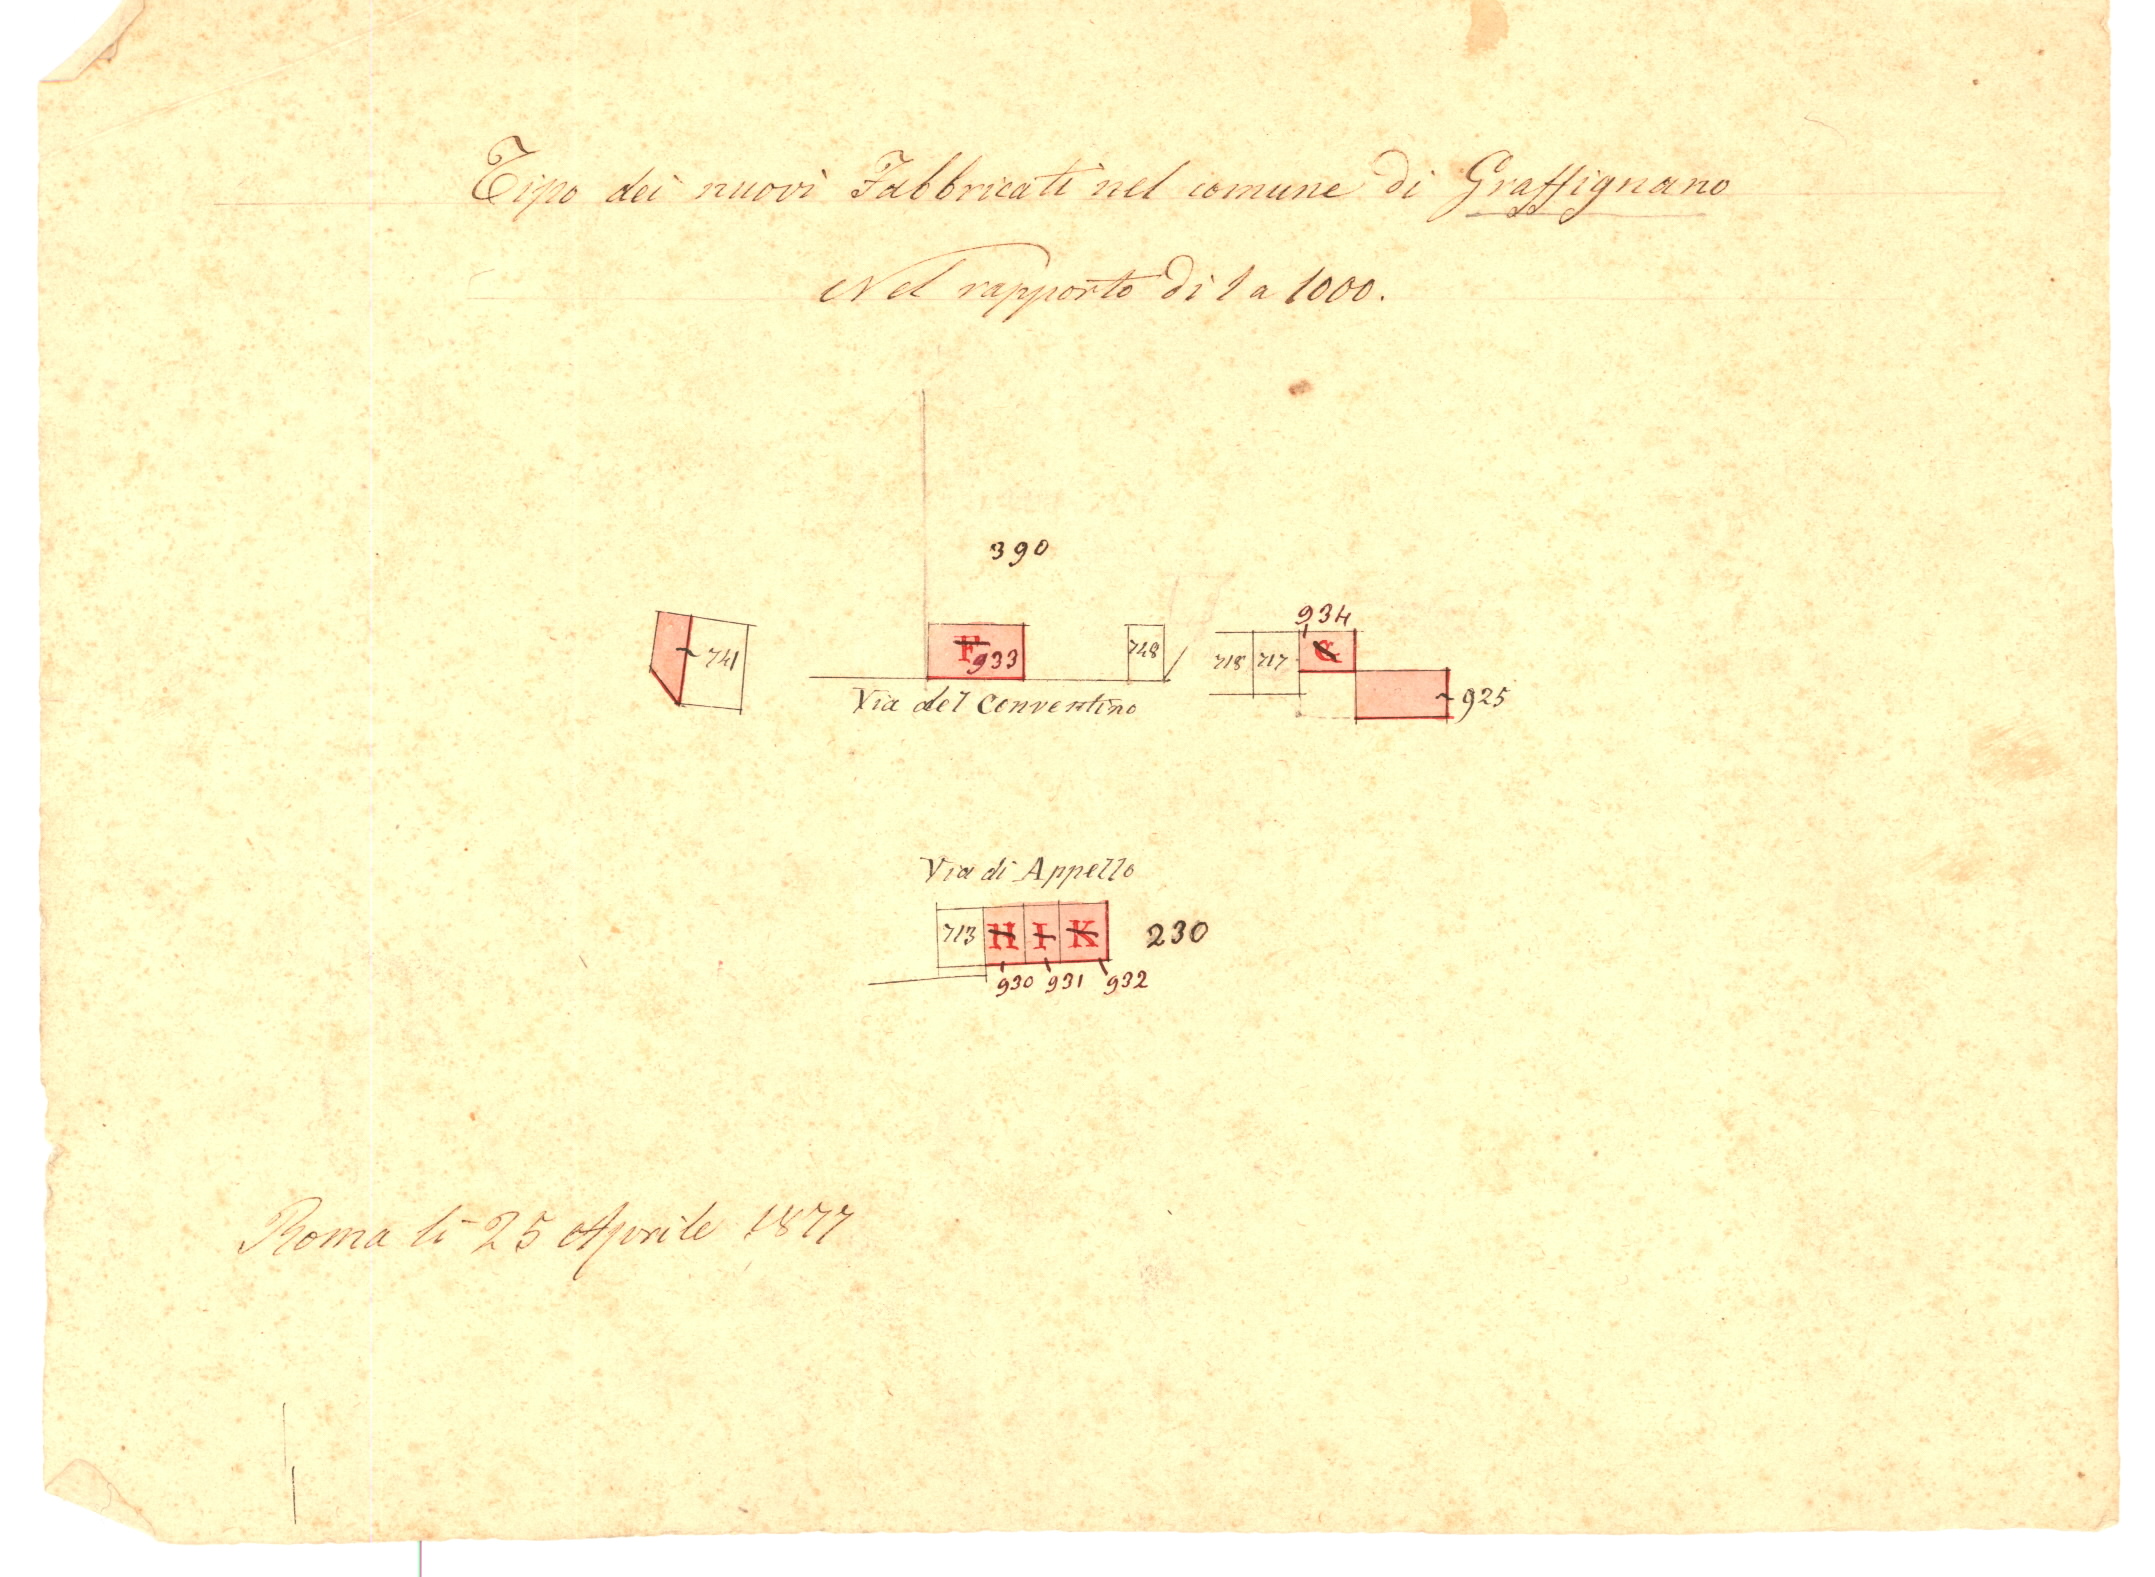 Tipo dei nuovi Fabbricati nel comune di Graffignano
Nel rapporto di 1 a 1000.
390
741
F 933
748
718 717
934
G
925
Via del Conventino
Via di Appello
713 H I K 230
930 931 932
Roma li 25 Aprile 1877